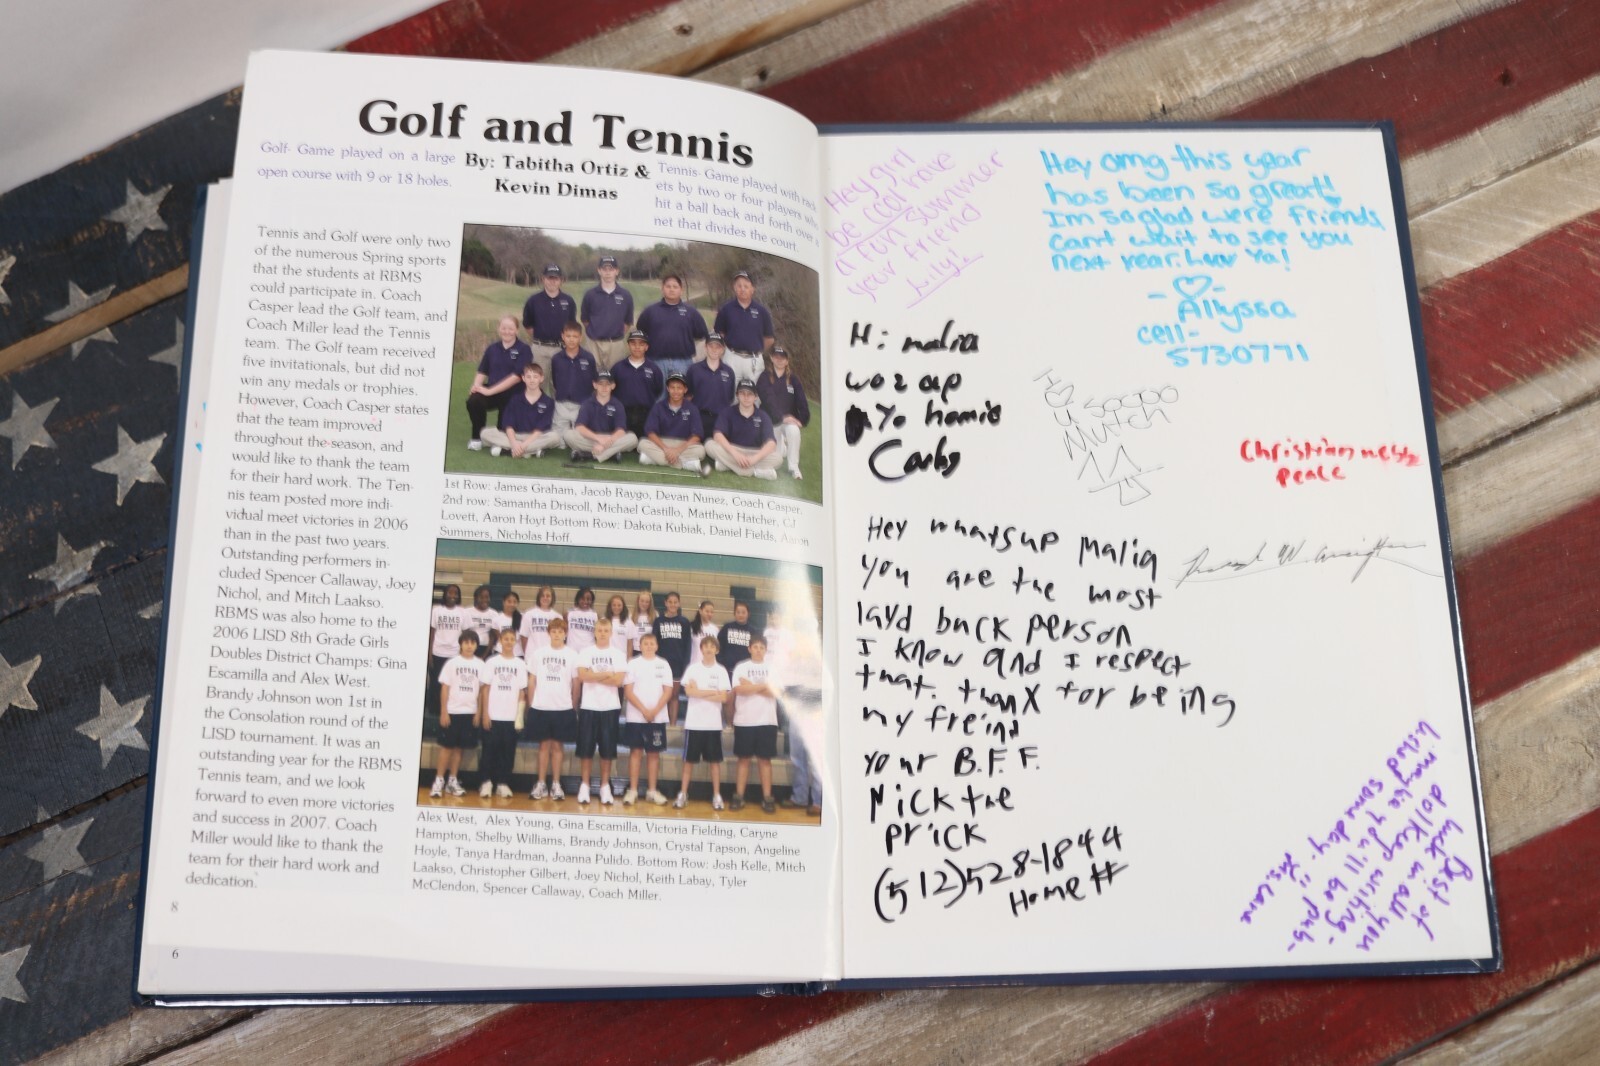 Golf and Tennis
Golf- Game played on a large
open course with 9 or 18 holes.
By: Tabitha Ortiz &
Kevin Dimas
Tennis- Game played with
ets by two or four players
hit a ball back and forth over a
net that divides the court.
Tennis and Golf were only two
of the numerous Spring sports
that the students at RBMS
could participate in. Coach
Casper lead the Golf team, and
Coach Miller lead the Tennis
team. The Golf team received
five invitationals, but did not
win any medals or trophies.
However, Coach Casper states
that the team improved
throughout the season, and
would like to thank the team
for their hard work. The Ten-
nis team posted more indi-
vidual meet victories in 2006
than in the past two years.
Outstanding performers in-
cluded Spencer Callaway, Joey
Nichol, and Mitch Laakso.
RBMS was also home to the
2006 LISD 8th Grade Girls
Doubles District Champs: Gina
Escamilla and Alex West.
Brandy Johnson won 1st in
the Consolation round of the
LISD tournament. It was an
outstanding year for the RBMS
Tennis team, and we look
forward to even more victories
and success in 2007. Coach
Miller would like to thank the
team for their hard work and
dedication.
8
6
1st Row: James Graham, Jacob Raygo, Devan Nunez, Coach Casper.
2nd row: Samantha Driscoll, Michael Castillo, Matthew Hatcher, CJ
Lovett, Aaron Hoyt Bottom Row: Dakota Kubiak, Daniel Fields, Aaron
Summers, Nicholas Hoff.
RBMS
TENNIS
RBMS
TENNIS
RBMS
TENNIS
CEDAR
TENNIS
Alex West, Alex Young, Gina Escamilla, Victoria Fielding, Caryne
Hampton, Shelby Williams, Brandy Johnson, Crystal Tapson, Angeline
Hoyle, Tanya Hardman, Joanna Pulido. Bottom Row: Josh Kelle, Mitch
Laakso, Christopher Gilbert, Joey Nichol, Keith Labay, Tyler
McClendon, Spencer Callaway, Coach Miller.
Hey girl
be cool have
a fun summer
your friend
Lily!
Hey omg this year
has been so great!
Im so glad were friends
cant wait to see you
next year. Luv Ya!
- ♡ -
Allyssa
cell-
5730771
Hi malia
woz ap
Yo homie
Carlos
I ♡
U soooo
Mutch
Christian ness
peace
Hey whatsup Malia
you are the most
layd back person
I know and I respect
that. thanx for being
my freind
your B.F.F.
Nick the
prick
(512)528-1844
Home #
Best of
luck in all you
do! Keep writing-
maybe you'll be pub-
lished some day.
Ms. Lane